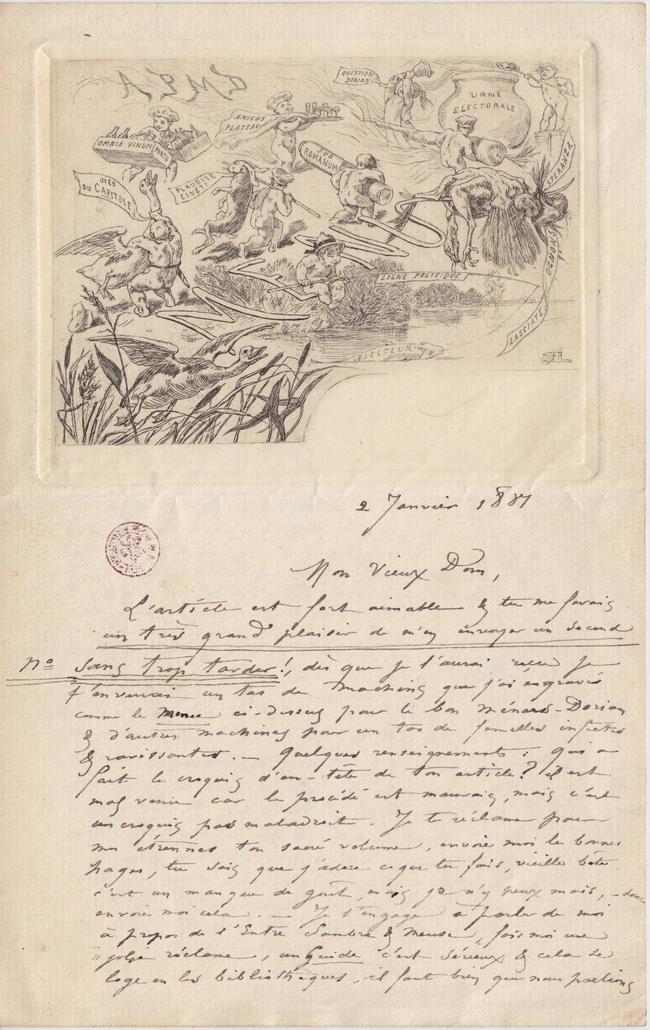 QUESTION DORIAN
URNE ELECTORALE
AMICUS PLATEAU!
OMNIA VINUM PORTO
JUS ROMANUM
OIES DU CAPITOLE
PLAUDITE CIVES!
SPERANZA
LIGNE POLITIQUE
LASCIATE
ELECTEUR
FR
2 Janvier 1887
Mon Vieux Dom,
L'article est fort aimable & tu me ferais
un très grand plaisir de m'en envoyer un second
No sans trop tarder!, dès que je l'aurai reçu je
t'enverrai un tas de machins que j'ai engravés
comme le Menu ci-dessus pour le bon Ménard-Dorian
& d'autres machines pour un tas de femelles infectes
& ravissantes. — Quelques renseignements: Qui a
fait le croquis d'en-tête de ton article? il est
mal venu car le procédé est mauvais, mais c'est
un croquis pas maladroit. Je te réclame pour
mes étrennes ton sacré volume, envoie moi les bonnes
pages, tu sais que j'adore ce que tu fais, vieille bête
c'est un manque de goût, mais je n'y peux mais, — donc
envoie moi cela. — Je t'engage à parler de moi
à propos de l'Entre Sambre & Meuse, fais moi une
jolie réclame, un Guide c'est sérieux & cela se
loge en les bibliothèques, il faut bien que nous